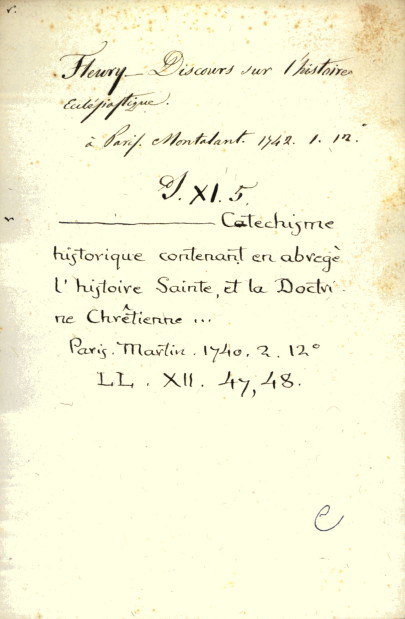 Fleury – Discours sur l'histoire
ecclésiastique.
à Paris. Montalant. 1742. 1. 12°
XI. 5.
Catechisme
historique contenant en abregè
l'histoire Sainte, et la Doctri
ne Chrêtienne ...
Paris. Martin. 1740. 2. 12°
LL. XII. 47, 48.
C